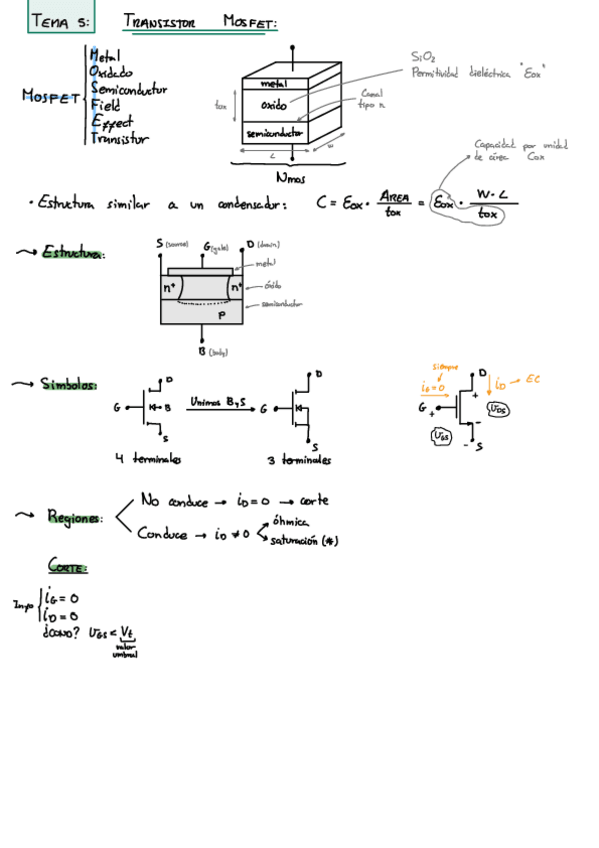 TEMA 5: TRANSISTOR MOSFET:
MOSFET
Metal
Oxidado
Semiconductor
Field
Effect
Transistor
metal
óxido
semiconductor
tox
L
W
Nmos
SiO2
Permitividad dieléctrica "Eox"
Canal
tipo n
Capacidad por unidad
de área Cox
· Estructura similar a un condensador: C = Eox · AREA / tox = Eox · W · L / tox
Estructura:
S (source) G (gate) D (drain)
metal
n+ n+ óxido
semiconductor
P
B (body)
Símbolos:
D
G B
S
4 terminales
Unimos B y S
D
G
S
3 terminales
siempre
iG = 0
D
iD → EC
G + +
UDS
UGS
- -
S
Regiones:
No conduce → iD = 0 → corte
Conduce → iD ≠ 0
óhmica
saturación (*)
CORTE:
iG = 0
iD = 0
¿COMO? UGS < Vt
valor
umbral